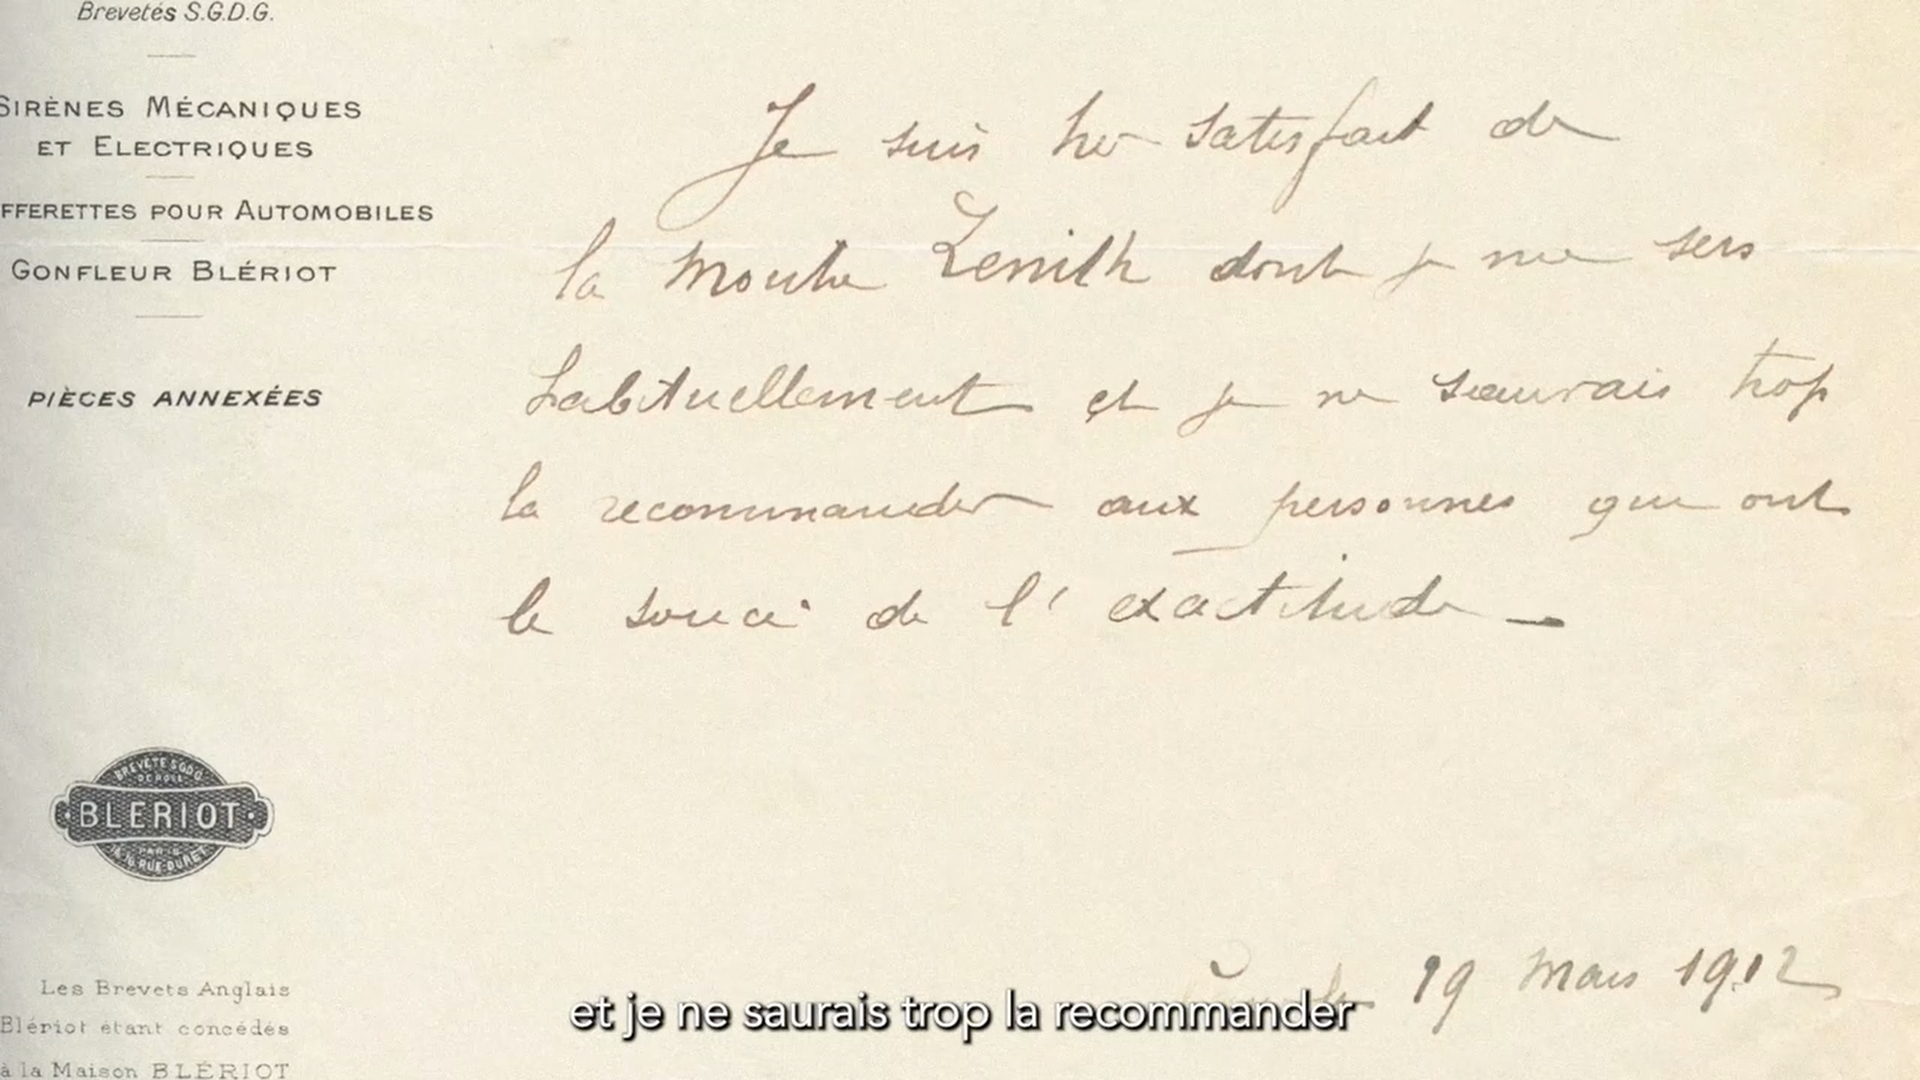 Brevetés S.G.D.G.
SIRÈNES MÉCANIQUES
ET ELECTRIQUES
FFERETTES POUR AUTOMOBILES
GONFLEUR BLÉRIOT
PIÈCES ANNEXÉES
Je suis très satisfait de
la montre Zenith dont je me sers
habituellement et je ne saurais trop
la recommander aux personnes qui ont
le souci de l'exactitude
BREVETÉ S.G.D.G.
BLERIOT
PARIS
RUE DURET
19 Mars 1912
et je ne saurais trop la recommander
Les Brevets Anglais
Blériot étant concédés
à la Maison BLÉRIOT